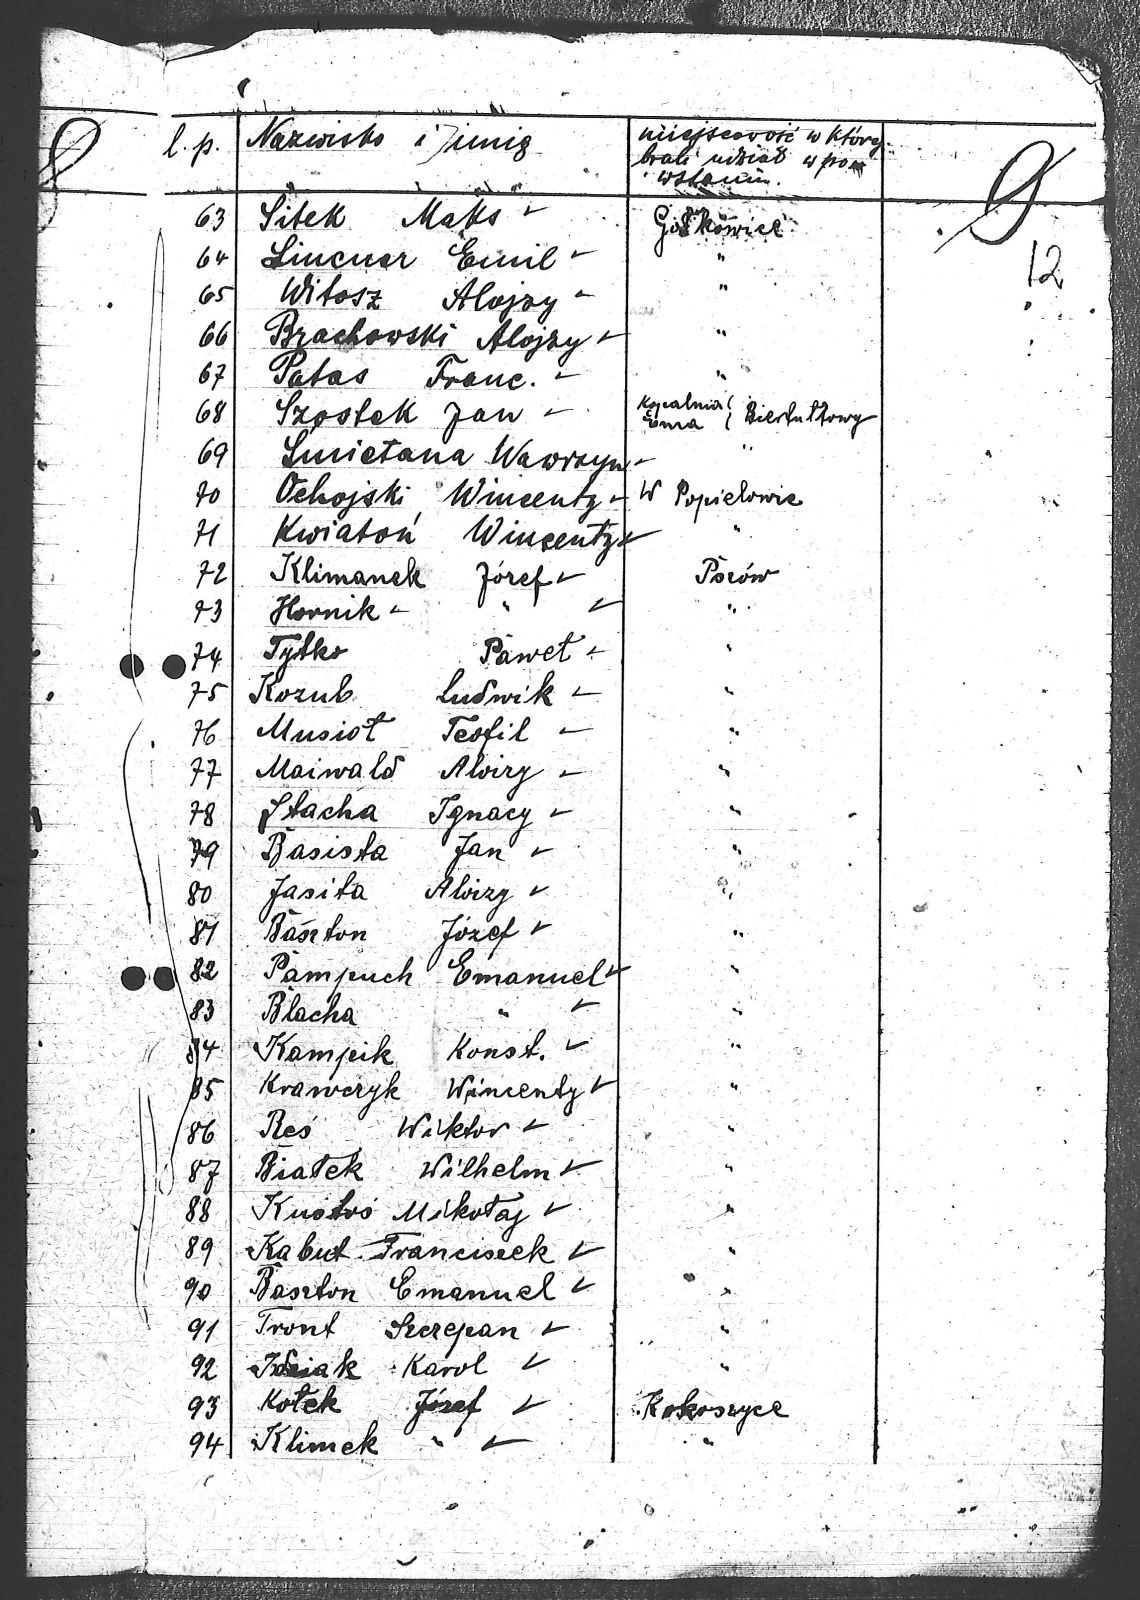 8
l.p. Nazwisko i Jimię miejscowość w której
brali udział w po-
wstaniu.
9
12
63 Sitek Maks Gołkowice
64 Lincner Emil "
65 Witosz Alojzy "
66 Brachowski Alojzy "
67 Patas Franc. "
68 Szostek Jan Kopalnia Ema Biertułtowy
69 Śmietana Wawrzyn "
70 Ochojski Wincenty W Popielowie
71 Kwiatoń Wincenty "
72 Klimanek Józef Pszów
73 Hornik " "
74 Tytko Paweł "
75 Kozub Ludwik "
76 Musioł Teofil "
77 Maiwald Aloizy "
78 Stacha Ignacy "
79 Basista Jan "
80 Jasita Aloizy "
81 Baszton Józef "
82 Pampuch Emanuel "
83 Blacha " "
84 Kampik Konst. "
85 Krawczyk Wincenty "
86 Reś Wiktor "
87 Białek Wilhelm "
88 Kustoś Mikołaj "
89 Kabut Franciszek "
90 Baszton Emanuel "
91 Tront Szczepan "
92 Karol "
93 Kołek Józef Kokoszyce
94 Klimek " "